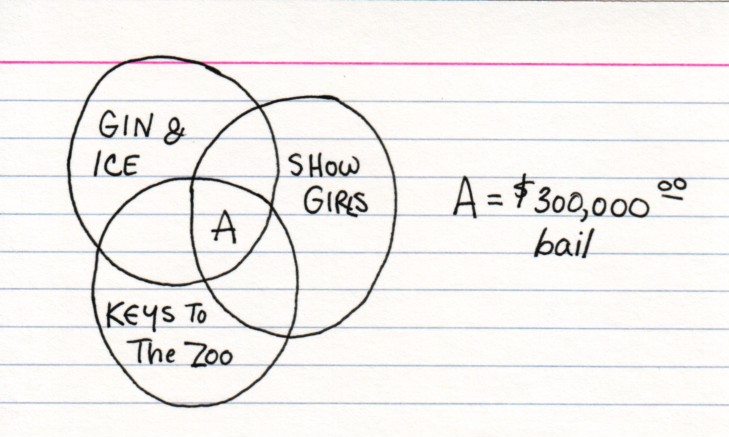 GIN &
ICE
SHOW
GIRLS
A
KEYS TO
The Zoo
A = $300,000 00
bail